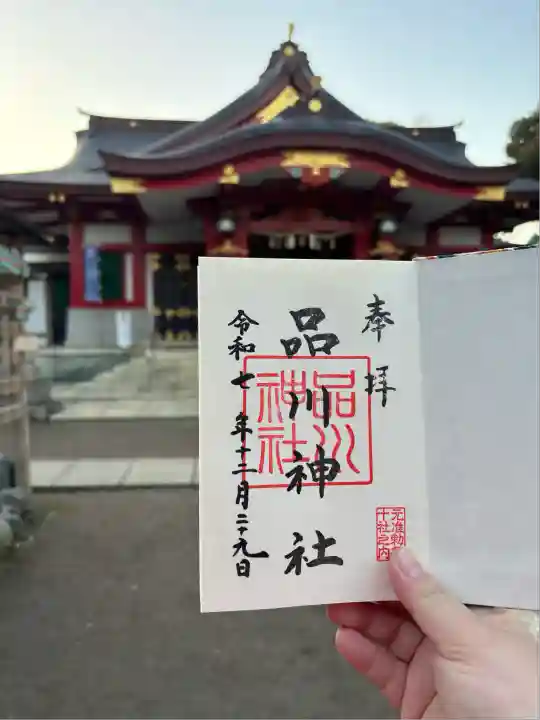 奉拝
元准勅
十社之内
品川神社
品川
神社
令和七年十二月二十九日